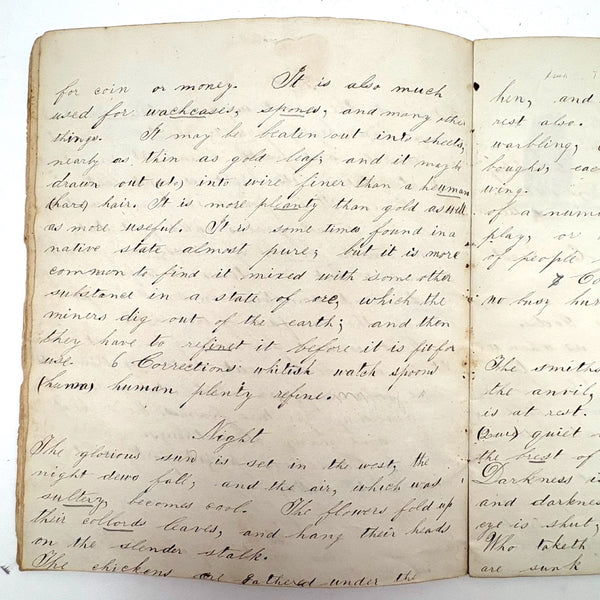 for coin or money. It is also much
used for wachcases, spones, and many other
things. It may be beaten out into sheets,
nearly as thin as gold leaf; and it may be
drawn out (to) into wire finer than a heuman
(hare) hair. It is more pleanty than gold as well
as more useful. It is some times found in a
native state almost pure; but it is more
common to find it mixed with some other
substance in a state of ore, which the
miners dig out of the earth; and then
they have to refinet it before it is fit for
use. 6 Corrections whitish watch spoons
(huma) human plenty refine.
Night
The glorious sun is set in the west; the
night dews fall; and the air, which was
sultery, becomes cool. The flowers fold up
their collords leaves, and hang their heads
on the slender stalk.
The chickens are gathered under the
hen, and
rest also.
warbling,
boughs, eac
wing.
of a num
play, or
of people
Co
no busy hu
The smiths
the anvil,
is at rest.
quiet
the brest of
Darkness i
and darknes
eye is shut;
Who taketh
are sunk